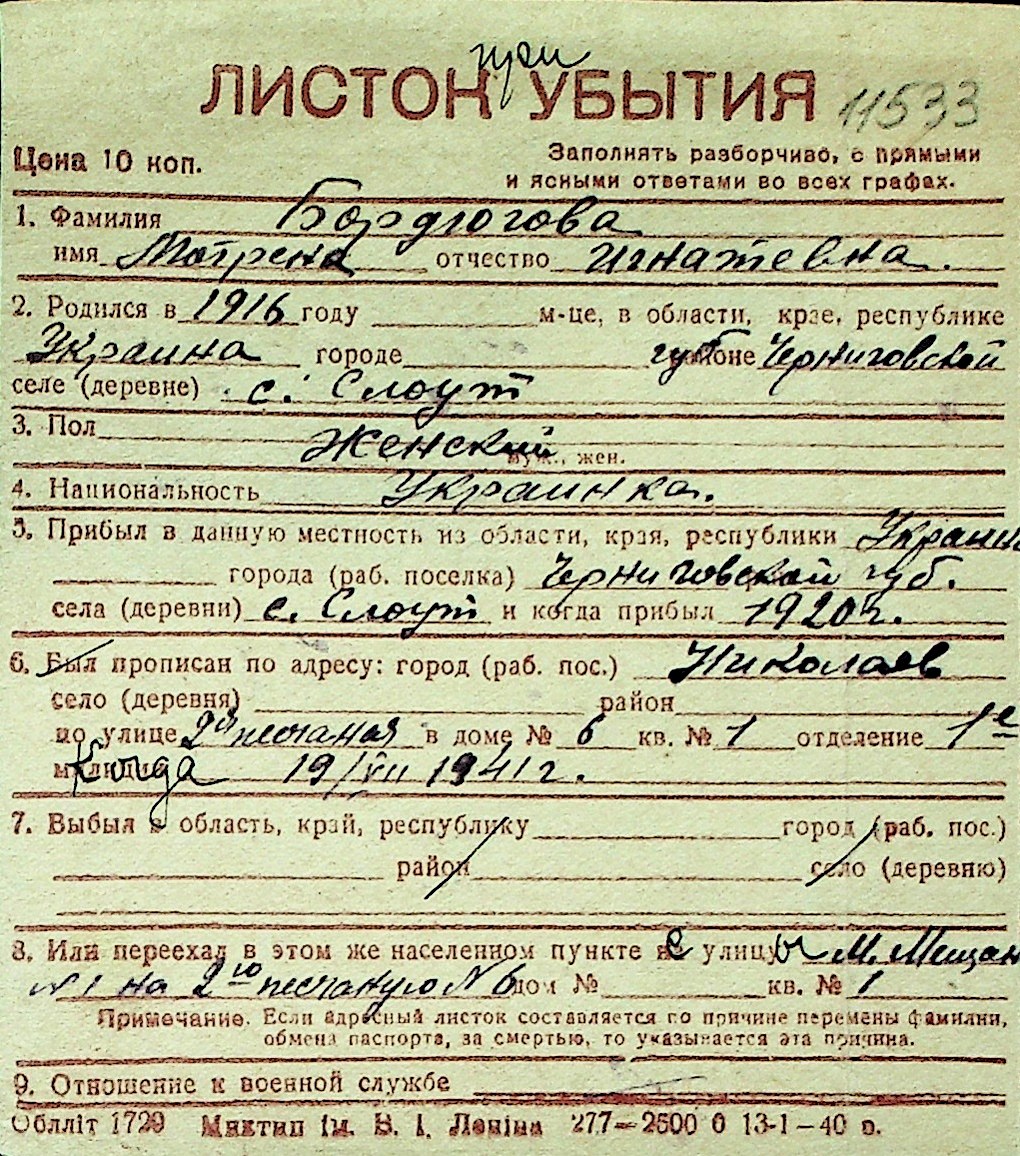 при
ЛИСТОК УБЫТИЯ 11533
Цена 10 коп.
Заполнять разборчиво, с прямыми
и ясными ответами во всех графах.
1. Фамилия Бордюгова
имя Мотрена отчество Игнатевна.
2. Родился в 1916 году м-це, в области, крае, республике
Украина городе губ Черниговской
селе (деревне) с. Слоут
3. Пол Женский
муж., жен.
4. Национальность Украинка.
5. Прибыл в данную местность из области, края, республики Украины
города (раб. поселка) Черниговской губ.
села (деревни) с. Слоут и когда прибыл 1920 г.
6. Был прописан по адресу: город (раб. пос.) Николаев
село (деревня) район
по улице 2ая песчаная в доме № 6 кв. № 1 отделение 1е
Когда 19/VII 1941 г.
7. Выбыл в область, край, республику город (раб. пос.)
район село (деревню)
8. Или переехал в этом же населенном пункте с улицы М. Мещан
№ 1 на 2ую песчаную № 6 дом № кв. № 1
Примечание. Если адресный листок составляется по причине перемены фамилии,
обмена паспорта, за смертью, то указывается эта причина.
9. Отношение к военной службе
Обллiт 1729 Миктип iм. В. I. Ленiна 277—2500 б 13-1—40 р.